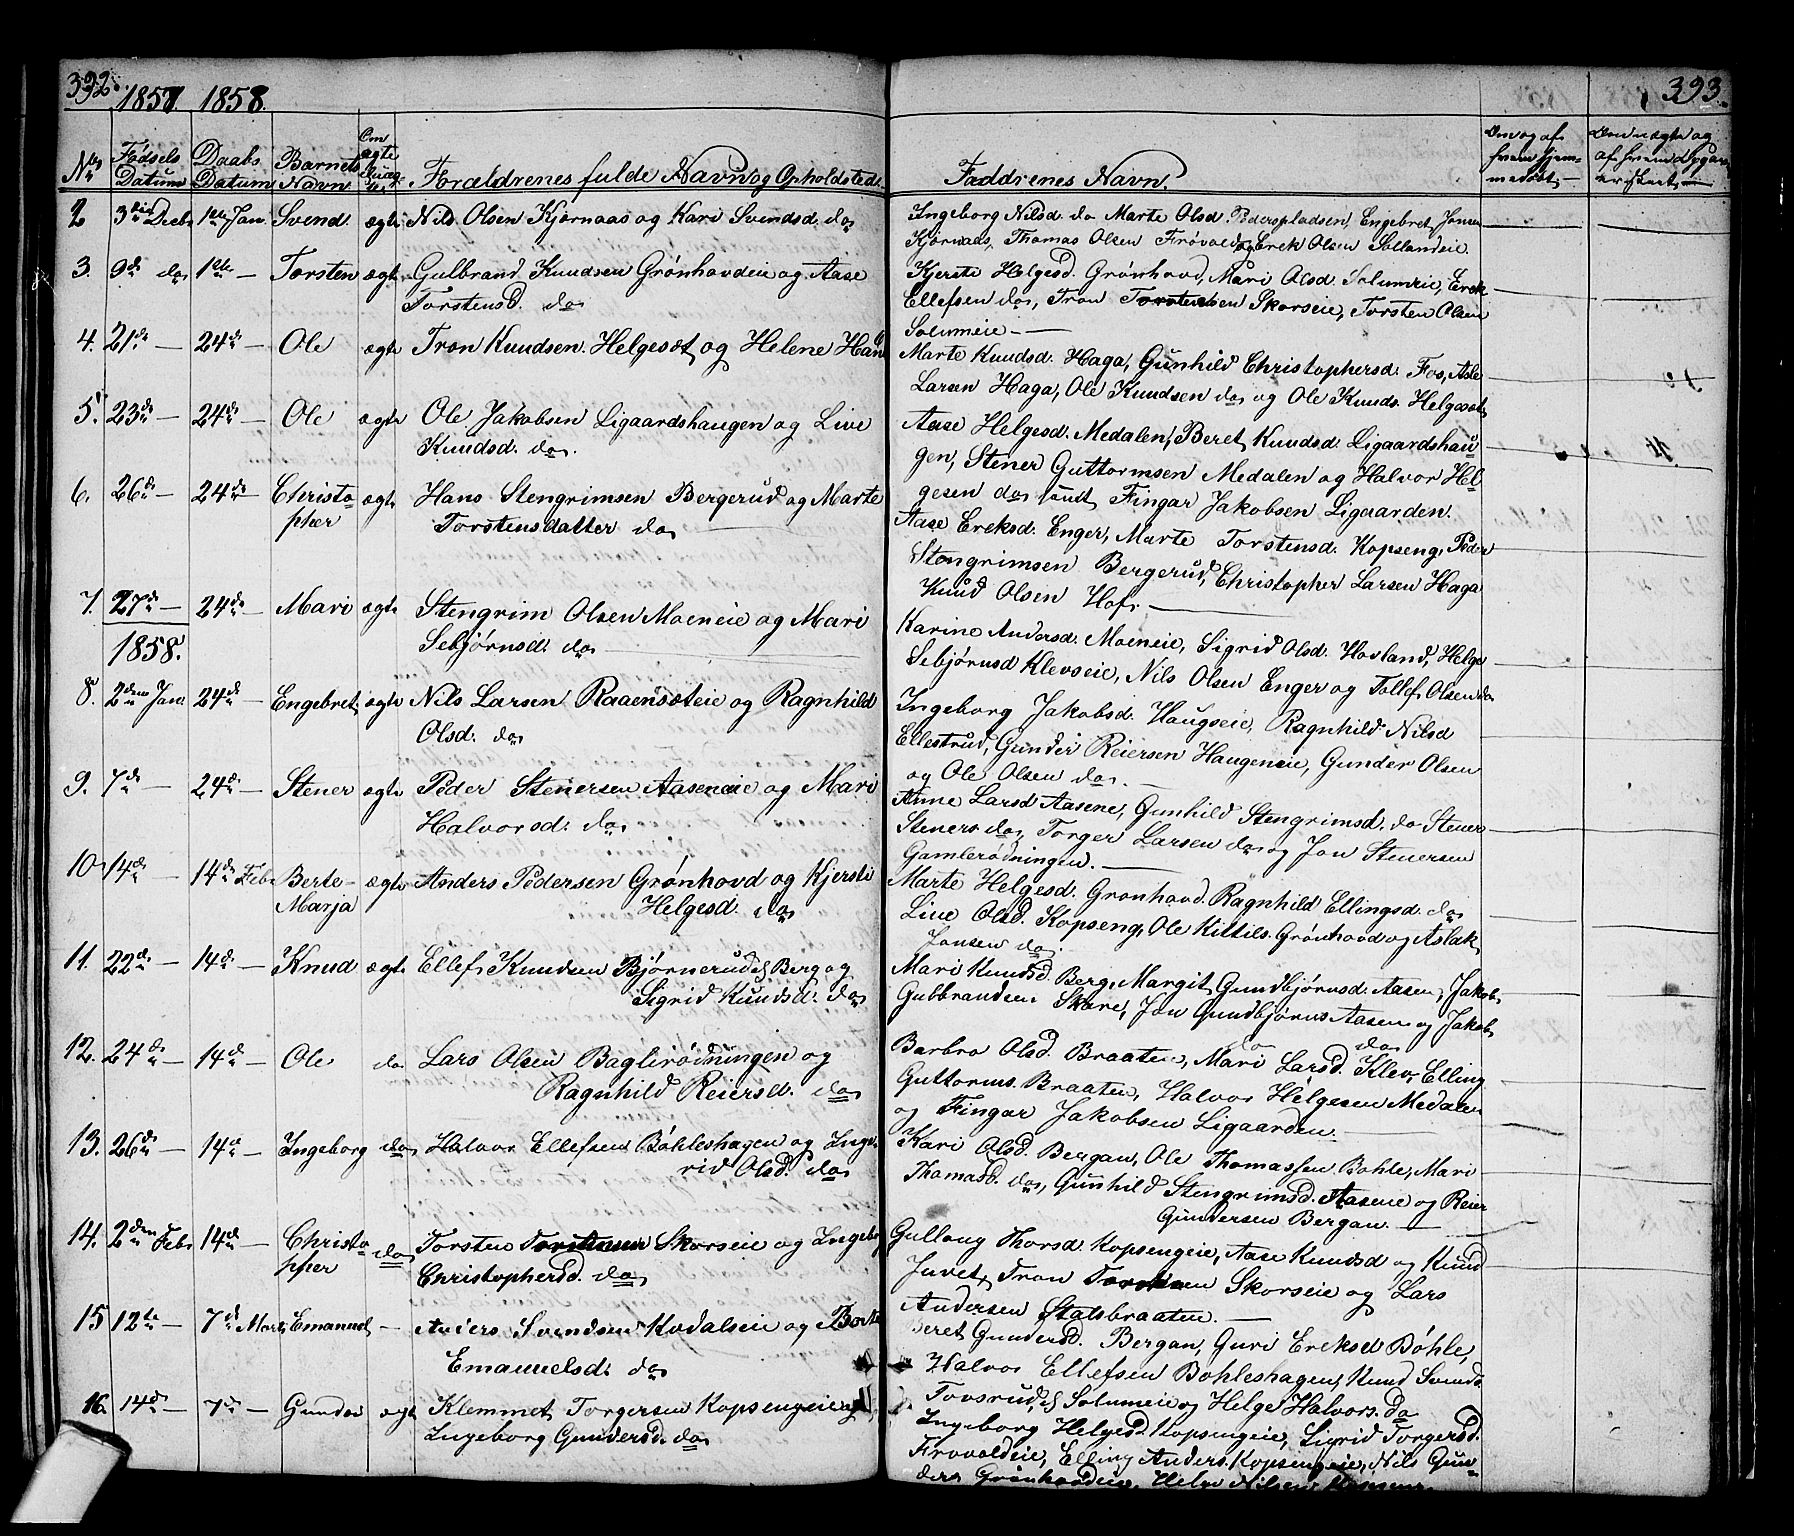 392. 1857 1858.
No Fødsels Datum Daabs Datum Barnets Navn Om ægte Forældrenes fulde Navn og Opholdsted
2 3die Decbr 1ste Jan. Svend. ægte Nils Olsen Kjørnaas og Kari Svendsd. do
3. 9de do 1ste — Torsten ægte Gulbrand Knudsen Grønhovdeie og Aase
Torstensd. do
4. 21de — 24de — Ole ægte Tron Knudsen Helgeset og Helene
5. 23de — 24de — Ole ægte Ole Jakobsen Ligaardshaugen og Live
Knudsd. do.
6. 26de — 24de — Christo ægte Hans Stengrimsen Bergerud og Marte
pher Torstensdatter do
7. 27de — 24de — Mari ægte Stengrim Olsen Moeneie og Mari
Sebjørnsd. do
1858.
8. 2den Jan 24de — Engebret ægte Nils Larsen Raaensæteie og Ragnhild
Olsd. do
9. 7de — 24de — Stener ægte Peder Stenersen Aaseneie og Mari
Halvorsd. do
10 14de — 14de Feb. Berte- ægte Anders Pedersen Grønhovd og Kjersti
Marja Helgesd. do
11. 22de — 14de — Knud ægte Ellef Knudsen Bjørnerud Berg og
Sigrid Knudsd. do
12. 24de — 14de — Ole do Lars Olsen Baglirødningen og
Ragnhild Reiersd. do
13. 26de — 14de — Ingeborg do Halvor Ellefsen Bøhleshagen og Inge
rid Olsd. do
14. 2den Febr 14de — Christo do Torsten Torstensen Skorseie og Ingeborg
pher Christophersd. do
15 12te — 7de Mart. Emanuel — Anders Svendsen Kodalseie og
Emanuelsd. do
16. 14de — 7de — Gunder ægte Klemmet Torgersen Kopsengeie og
Ingeborg Gundersd. do
393.
Faddrenes Navn.
Om og af hvem hjemmedøbt
Ingeborg Nilsd. do Marte Olsd. Pederspladsen, Engebret Jonsen
Kjørnaas, Thomas Olsen Frøvold og Erek Olsen Sollandeie.
Kjerste Helgesd. Grønhovd, Mari Olsd. Solumeie, Erek
Ellefsen do, Tron Torstensen Skorseie, Torsten Olsen
Solumeie —
Marte Knudsd. Haga, Gunhild Christophersd. Fos, Asle
Larsen Haga, Ole Knudsen do og Ole Knuds. Helgeset
Aase Helgesd. Medalen, Beret Knudsd. Ligaardshau
gen, Stener Guttormsen Medalen og Halvor Hel
gesen do samt Fingar Jakobsen Ligaarden.
Aase Ereksd. Enger, Marte Torstensd. Kopseng, Peder
Stengrimsen Bergerud, Christopher Larsen Haga
Knud Olsen Hof. —
Karine Andersd. Moeneie, Sigrid Olsd. Hovland, Helge
Sebjørnsd Klevseie, Nils Olsen Enger og Tollef Olsen do
Ingeborg Jakobsd. Haugseie, Ragnhild Nilsd
Ellestrud, Gunder Reiersen Haugeneie, Gunder Olsen
og Ole Olsen do.
Anne Larsd Aasene, Gunhild Stengrimsd. do Stener
Steners do, Torger Larsen do og Jon Stenersen
Gamlerødningen. —
Marte Helgesd. Grønhovd. Ragnhild Ellingsd. do
Live Olsd. Kopseng, Ole Kittils. Grønhovd og Aslak
Jonsen do.
Mari Knudsd. Berg, Margit Gundbjørnsd. Aasen, Jakob
Gulbrandsen Skare, Jon Gundbjørns Aasen og Jakob
do do
Barbro Olsd. Braaten, Mari Larsd. Klev, Elling
Guttorms. Braaten, Halvor Helgesen Medalen
og Fingar Jakobsen Ligaarden. —
Kari Olsd. Bergan, Ole Thomassen Bøhle, Mari
Thomasd. do, Gunhild Stengrimsd. Aasene og Reier
Gundersen Bergan. —
Gullaug Thorsd Kopsengeie, Aase Knudsd og Knud
Juvet, Tron Torstensen Skorseie og Lars
Andersen Statsbraaten. —
Beret Gundersd. Bergan, Guri Ereksd Bøhle,
Halvor Ellefsen Bøhleshagen, Knud Svends
Tovsrud, Solumeie og Helge Halvors. do
Ingeborg Helgesd Kopsengeie, Sigrid Torgersd.
Frøvoldeie, Elling Anders. Kopsengeie, Nils Gun-
ders Grønhovdeie, Helge Nilsen